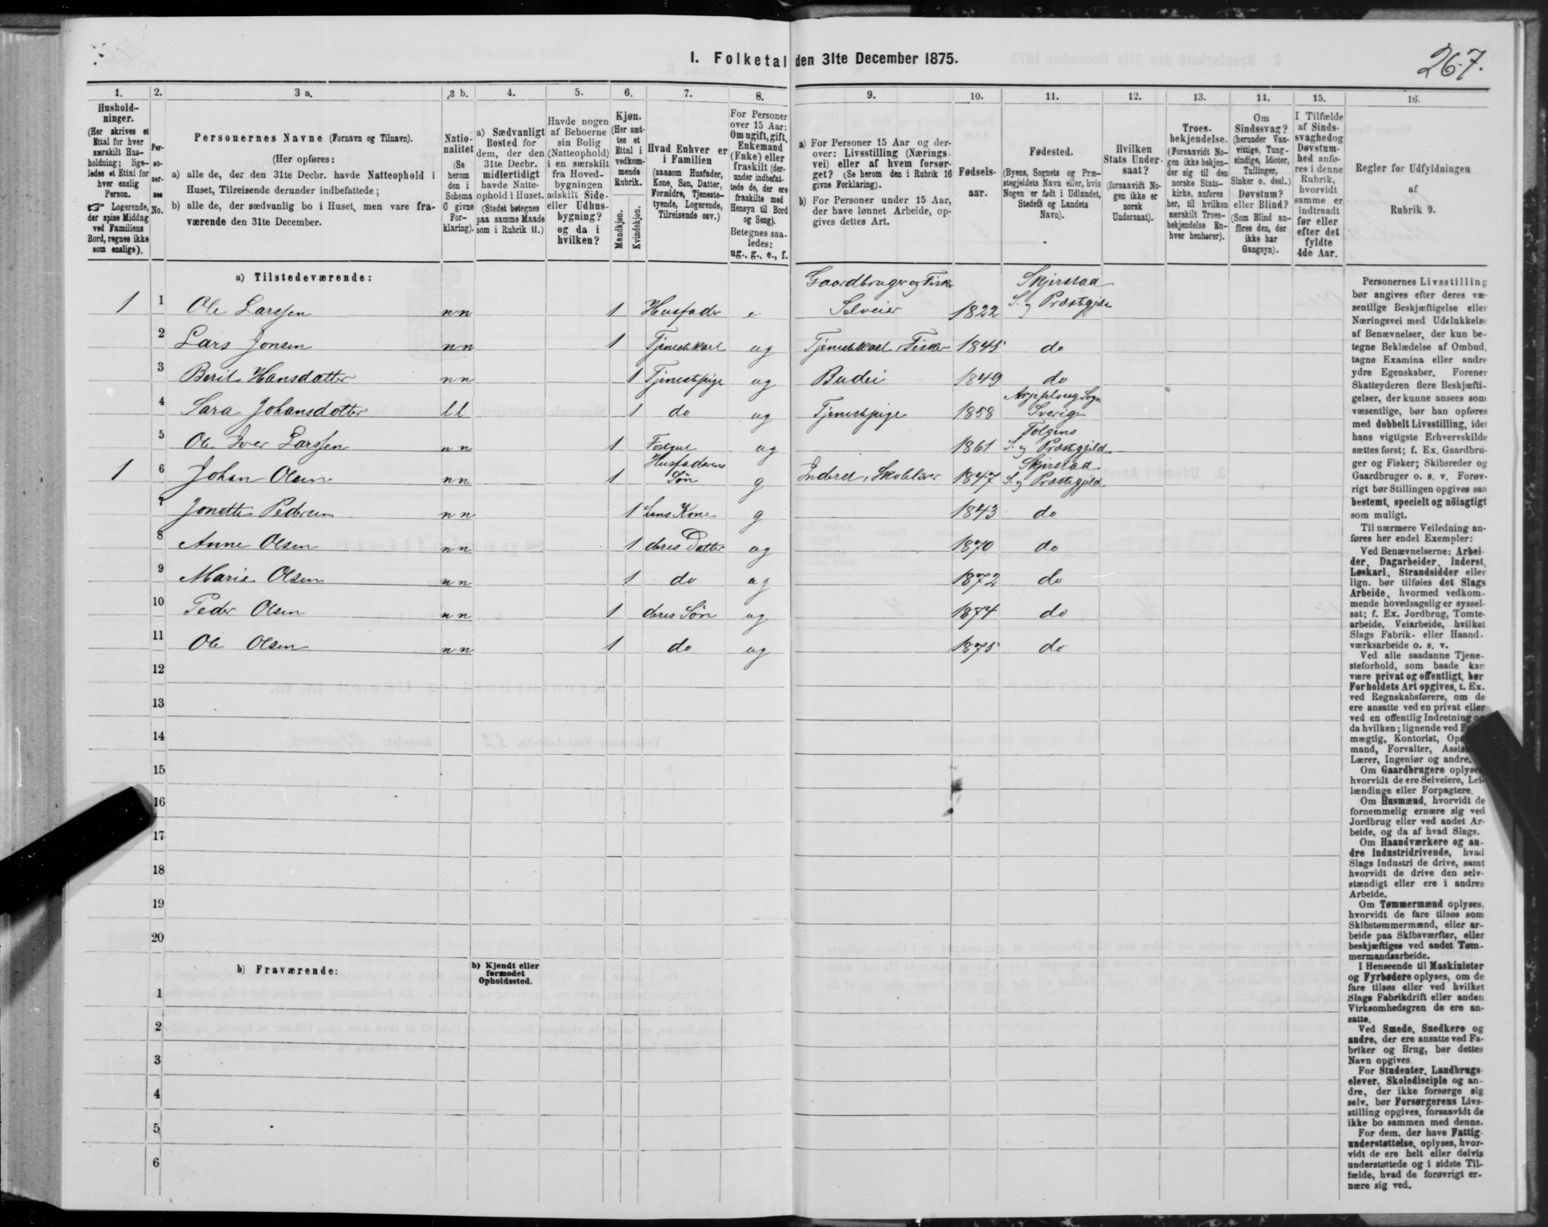 I. Folketal den 31te December 1875.
267.
1. 2. 3 a. 3 b. 4. 5. 6. 7. 8. 9. 10. 11. 12. 13. 14. 15. 16.
Hushold-
ninger.
(Her skrives et
Ettal for hver
særskilt Hus-
holdning; lige-
ledes et Ettal for
hver enslig
Person.
☞ Logerende,
der spise Middag
ved Familiens
Bord, regnes ikke
som enslige).
Per-
so-
ner-
nes
No.
Personernes Navne (Fornavn og Tilnavn).
(Her opføres:
a) alle de, der den 31te Decbr. havde Natteophold i
Huset, Tilreisende derunder indbefattede;
b) alle de, der sædvanlig bo i Huset, men vare fra-
værende den 31te December.
Natio-
nalitet
(Se
herom
den i
Schema
C givne
For-
klaring).
a) Sædvanligt
Bosted for
dem, der den
31te Decbr.
midlertidigt
havde Natte-
ophold i Huset.
(Stedet betegnes
paa samme Maade
som i Rubrik 11.)
Havde nogen
af Beboerne
sin Bolig
(Natteophold)
i en særskilt
fra Hoved-
bygningen
adskilt Side-
eller Udhus-
bygning?
og da i
hvilken?
Kjøn.
(Her sæt-
tes et
Ettal i
vedkom-
mende
Rubrik.
Mandkjøn.
Kvindekjøn.
Hvad Enhver er
i Familien
(saasom Husfader,
Kone, Søn, Datter,
Forældre, Tjeneste-
tyende, Logerende,
Tilreisende osv.)
For Personer
over 15 Aar:
Om ugift, gift,
Enkemand
(Enke) eller
fraskilt (der-
under indbefat-
tede de, der ere
fraskilte med
Hensyn til Bord
og Seng).
Betegnes saa-
ledes:
ug., g., e., f.
a) For Personer 15 Aar og der-
over: Livsstilling (Nærings-
vei) eller af hvem forsør-
get? (Se herom den i Rubrik 16
givne Forklaring).
b) For Personer under 15 Aar,
der have lønnet Arbeide, op-
gives dettes Art.
Fødsels-
aar.
Fødested.
(Byens, Sognets og Præ-
stegjeldets Navn eller, hvis
Nogen er født i Udlandet,
Stedets og Landets
Navn).
Hvilken
Stats Under-
saat?
(forsaavidt No-
gen ikke er
norsk
Undersaat).
Troes-
bekjendelse.
(Forsaavidt No-
gen ikke bekjen-
der sig til den
norske Stats-
kirke, anføres
her, til hvilken
særskilt Troes-
bekjendelse En-
hver henhører).
Om
Sindssvag?
(herunder Van-
vittige, Tung-
sindige, Idioter,
Tullinger,
Sinker o. desl.)
Døvstum?
eller Blind?
(Som Blind an-
føres den, der
ikke har
Gangsyn).
I Tilfælde
af Sinds-
svaghed og
Døvstum-
hed anfø-
res i denne
Rubrik,
hvorvidt
samme er
indtraadt
før eller
efter det
fyldte
4de Aar.
Regler for Udfyldningen
af
Rubrik 9.
a) Tilstedeværende:
1 1 Ole Larssen nn 1 Husfader e Gaardbruger og Fisker Selveier 1822 Skjerstad S. og Præstegjeld
2 Lars Jonsen nn 1 Tjenestekarl ug Tjenestekarl Fisker 1845 do
3 Berit Hansdatter nn 1 Tjenestpige ug Budei 1849 do
4 Sara Johansdatter ll 1 do ug Tjenestpige 1858 Arjeploug Sogn Sverige
5 Ole Iver Larssen nn 1 ug 1861 S. og Præstegjeld
1 6 Johan Olsen nn 1 Husfaderens Søn g Inderst, Skoelærer 1847 Skjerstad S. og Præstegjeld
7 Jonette Pedersen nn 1 hans Kone g 1843 do
8 Anne Olsen nn 1 deres Datter ug 1870 do
9 Marie Olsen nn 1 do ug 1872 do
10 Peder Olsen nn 1 deres Søn ug 1874 do
11 Ole Olsen nn 1 do ug 1875 do
12
13
14
15
16
17
18
19
20
b) Fraværende:
b) Kjendt eller
formodet
Opholdssted.
1
2
3
4
5
6
Personernes Livsstilling
bør angives efter deres væ-
sentlige Beskjæftigelse eller
Næringsvei med Udelukkelse
af Benævnelser, der kun be-
tegne Beklædelse af Ombud,
tagne Examina eller andre
ydre Egenskaber. Forener
Skatteyderen flere Beskjæfti-
gelser, der kunne ansees som
væsentlige, bør han opføres
med dobbelt Livsstilling, idet
hans vigtigste Erhvervskilde
sættes først; f. Ex. Gaardbru-
ger og Fisker; Skibsreder og
Gaardbruger o. s. v. Forøv-
rigt bør Stillingen opgives saa
bestemt, specielt og nöiagtigt
som muligt.
Til nærmere Veiledning an-
føres her endel Exempler:
Ved Benævnelserne: Arbei-
der, Dagarbeider, Inderst,
Løskarl, Strandsidder eller
lign. bør tilføies det Slags
Arbeide, hvormed vedkom-
mende hovedsagelig er syssel-
sat; f. Ex. Jordbrug, Tomte-
arbeide, Veiarbeide, hvilket
Slags Fabrik- eller Haand-
værksarbeide o. s. v.
Ved alle saadanne Tjene-
steforhold, som baade kan
være privat og offentligt, bør
Forholdets Art opgives, t. Ex.
ved Regnskabsførere, om de
ere ansatte ved en privat eller
ved en offentlig Indretning og
da hvilken; lignende ved
mægtig, Kontorist,
mand, Forvalter,
Lærer, Ingeniør og andre.
Om Gaardbrugere oplyses,
hvorvidt de ere Selveiere, Lei-
lændinge eller Forpagtere.
Om Husmænd, hvorvidt de
fornemmelig ernære sig ved
Jordbrug eller ved andet Ar-
beide, og da af hvad Slags.
Om Haandværkere og an-
dre Industridrivende, hvad
Slags Industri de drive, samt
hvorvidt de drive den selv-
stændigt eller ere i andres
Arbeide.
Om Tømmermænd oplyses,
hvorvidt de fare tilsøs som
Skibstømmermænd, eller ar-
beide paa Skibsværfter, eller
beskjæftiges ved andet Tøm-
mermandsarbeide.
I Henseende til Maskinister
og Fyrbødere oplyses, om de
fare tilsøs eller ved hvilket
Slags Fabrikdrift eller anden
Virksomhedsgren de ere an-
satte.
Ved Smede, Snedkere og
andre, der ere ansatte ved Fa-
briker og Brug, bør dettes
Navn opgives.
For Studenter, Landbrugs-
elever, Skoledisciple og an-
dre, der ikke forsørge sig
selv, bør Forsørgerens Livs-
stilling opgives, forsaavidt de
ikke bo sammen med denne.
For dem, der have Fattig-
understøttelse, oplyses, hvor-
vidt de ere helt eller delvis
understøttede og i sidste Til-
fælde, hvad de forøvrigt er-
nære sig ved.